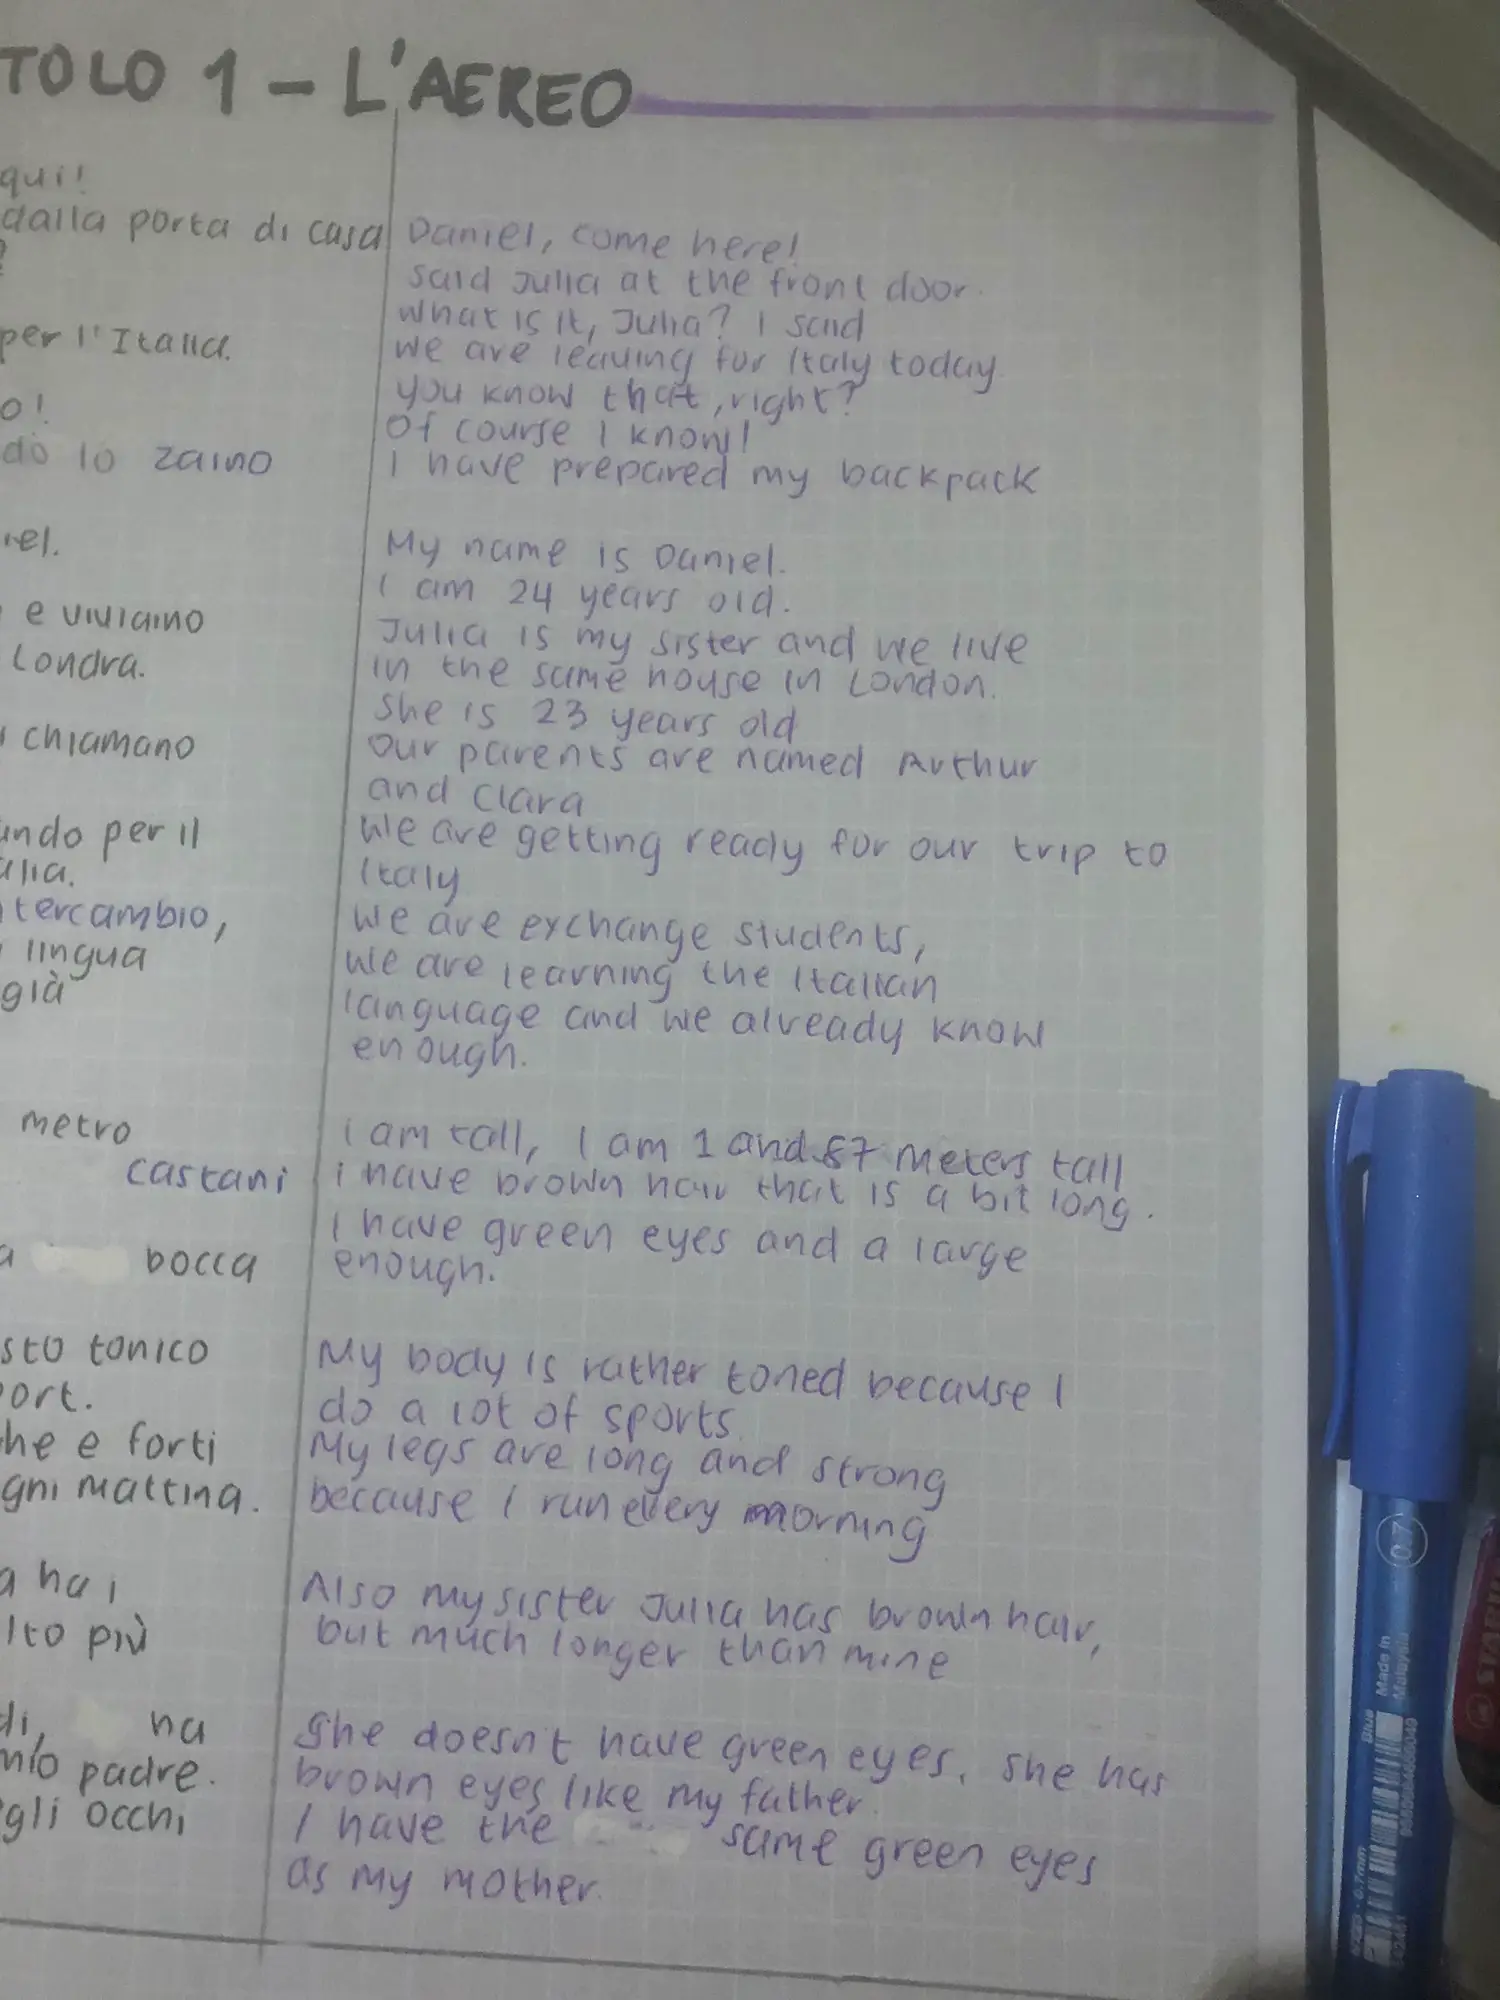 TOLO 1 - L'AEREO
qui!
dalla porta di casa
?
per l'Italia.
o!
do lo zaino
iel.
e viviamo
Londra.
chiamano
ando per il
alia.
tercambio,
lingua
già
metro
castani
a bocca
sto tonico
port.
he e forti
gni mattina.
a ha i
lto più
di, ha
mio padre.
gli occhi
Daniel, come here!
said Julia at the front door.
What is it, Julia? I said
We are leaving for Italy today.
you know that, right?
Of course I know!
I have prepared my backpack
My name is Daniel.
I am 24 years old.
Julia is my sister and we live
in the same house in London.
She is 23 years old
Our parents are named Arthur
and Clara
We are getting ready for our trip to
Italy
We are exchange students,
We are learning the Italian
language and we already know
enough.
I am tall, I am 1 and 87 meters tall
I have brown hair that is a bit long.
I have green eyes and a large
enough.
My body is rather toned because I
do a lot of sports.
My legs are long and strong
because I run every morning
Also my sister Julia has brown hair,
but much longer than mine
She doesn't have green eyes, she has
brown eyes like my father.
I have the same green eyes
as my mother.
0.7
Blue
Made in
Malaysia
0.7mm